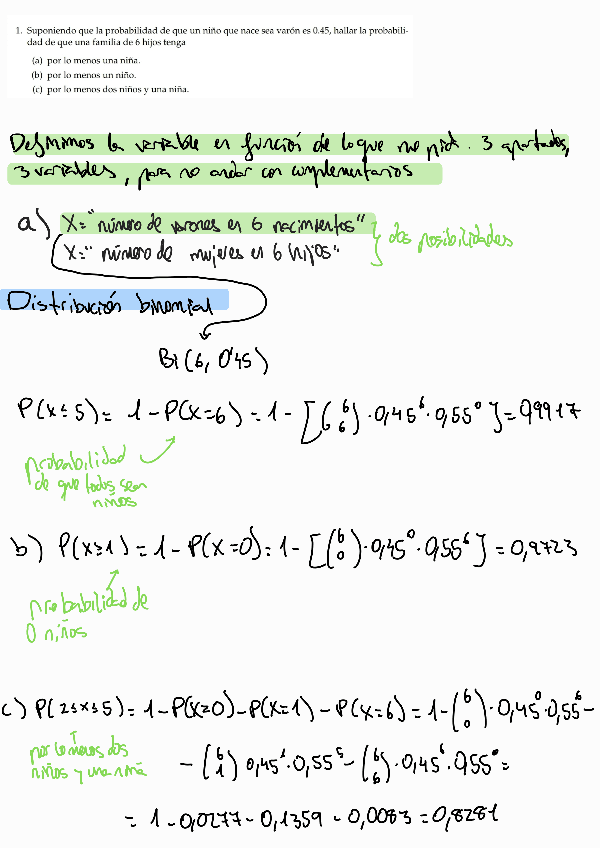 1. Suponiendo que la probabilidad de que un niño que nace sea varón es 0.45, hallar la probabili-
dad de que una familia de 6 hijos tenga
(a) por lo menos una niña.
(b) por lo menos un niño.
(c) por lo menos dos niños y una niña.
Definimos la variable en función de lo que me pida. 3 apartados,
3 variables, para no andar con complementarios
a) X="número de varones en 6 nacimientos"
X="número de mujeres en 6 hijos"
dos posibilidades
Distribución binomial
Bi(6, 0'45)
P(x≤5) = 1-P(X=6) = 1-[(6 6)·0,45^6·0,55^0] = 0,9917
probabilidad
de que todos sean
niños
b) P(x≥1) = 1-P(X=0) = 1-[(6 0)·0,45^0·0,55^6] = 0,9723
probabilidad de
0 niños
c) P(2≤x≤5) = 1-P(X=0)-P(X=1)-P(X=6) = 1-(6 0)·0,45^0·0,55^6-
por lo menos dos
niños y una niña
-(6 1) 0,45^1·0,55^5-(6 6)·0,45^6·0,55^0=
= 1-0,0277-0,1359-0,0083 = 0,8281